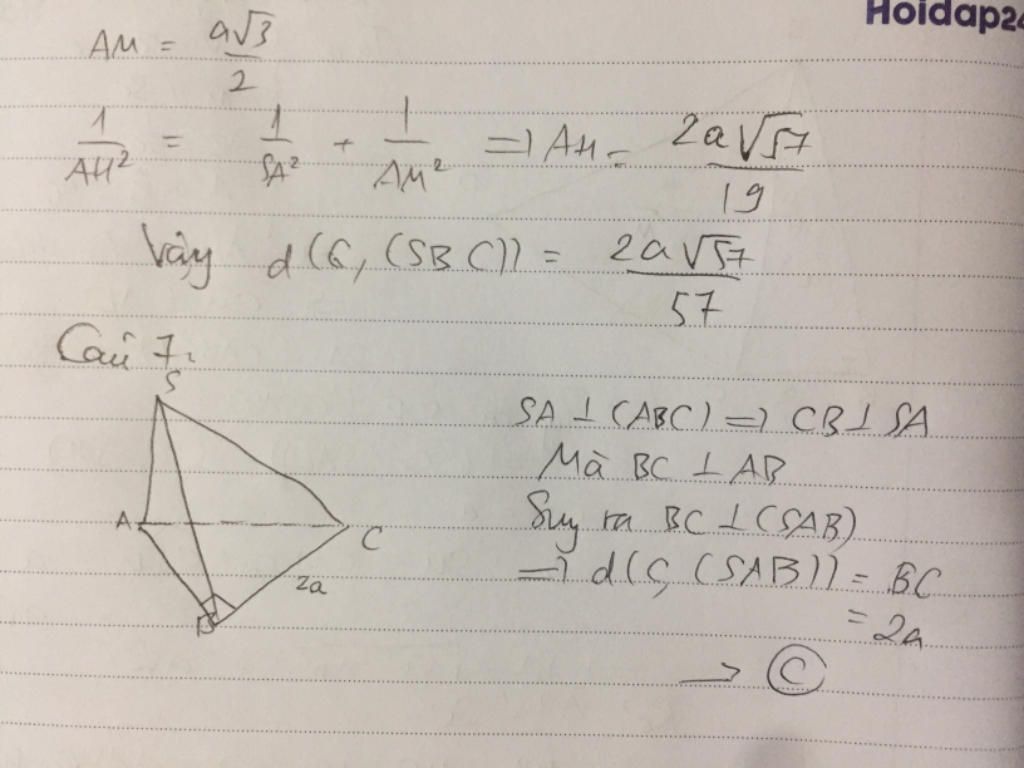 Hoidap24
AM = a√3/2
1/AH² = 1/SA² + 1/AM² => AH = 2a√57/19
Vậy d(G, (SBC)) = 2a√57/57
Câu 7:
S
A
C
2a
B
SA ⊥ (ABC) => CB ⊥ SA
Mà BC ⊥ AB
Suy ra BC ⊥ (SAB)
=> d(C, (SAB)) = BC
= 2a
→ Ⓒ